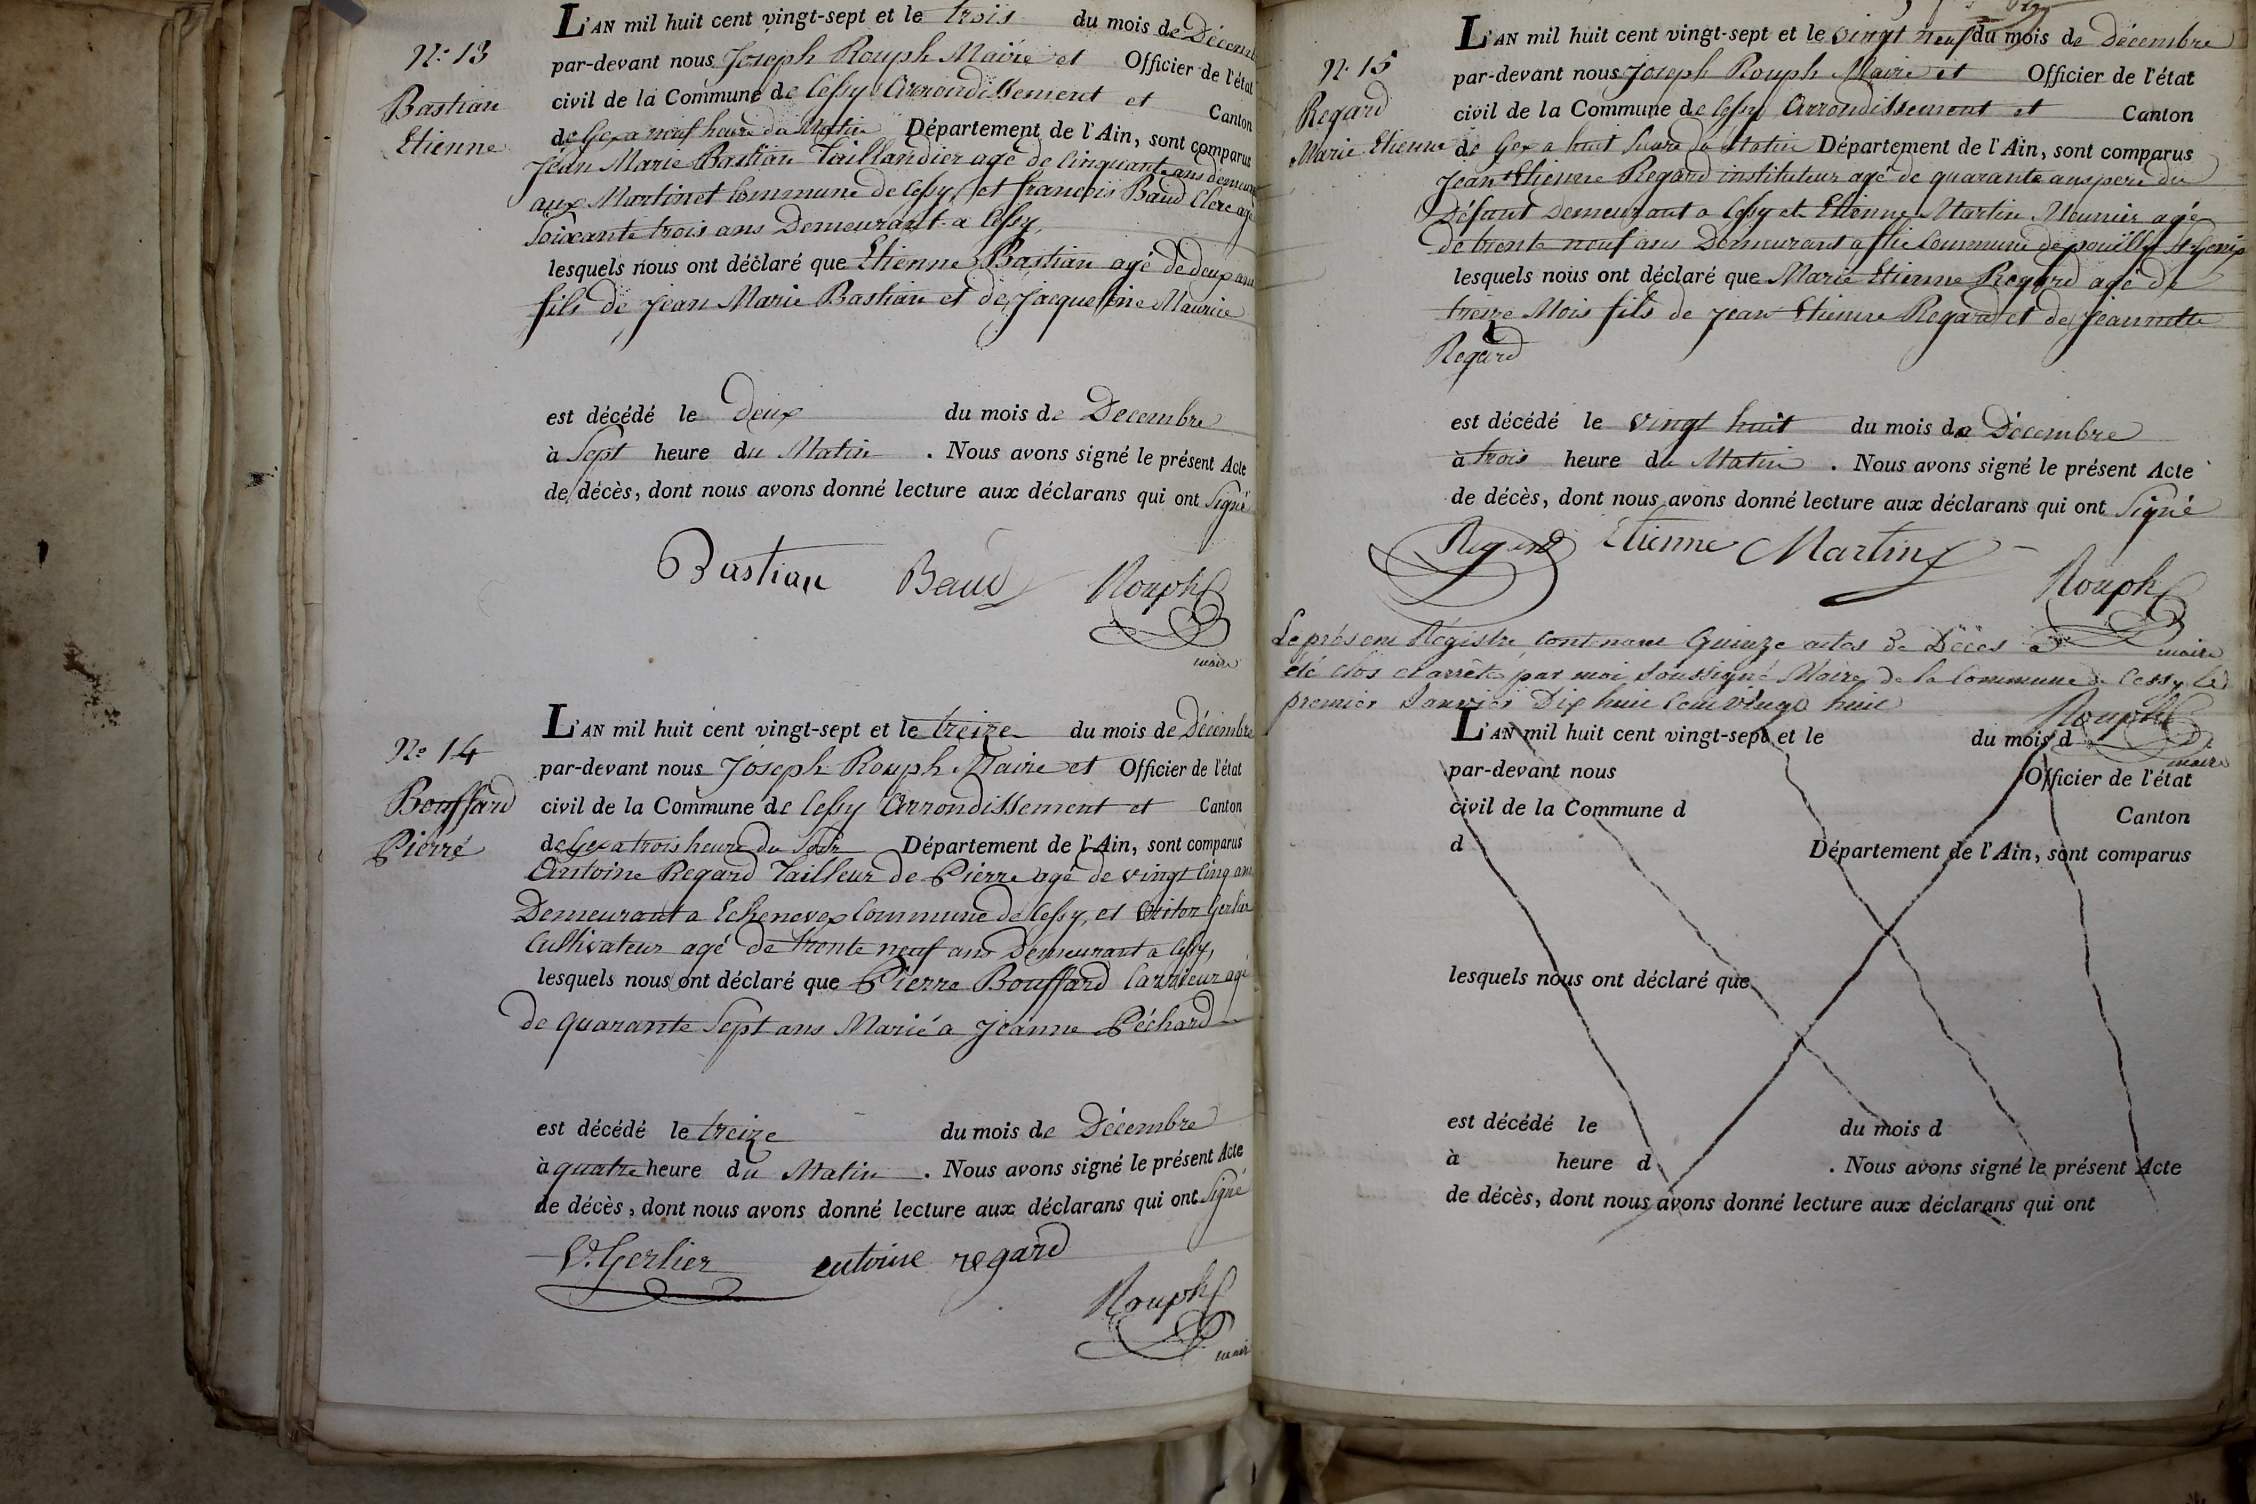 N.º 13
Bastian
Etienne
L'AN mil huit cent vingt-sept et le trois du mois de Décemb
par-devant nous Joseph Rouph Maire et Officier de l'état
civil de la Commune de Cessy Arrondissement et Canton
de Gex a neuf heure du Matin Département de l'Ain, sont comparus
Jean Marie Bastian Taillandier agé de Cinquante ans demeurant
aux Martinet Commune de Cessy, et francois Baud Clerc agé
Soixante trois ans Demeurant a Cessy,
lesquels nous ont déclaré que Etienne Bastian agé de deux ans
fils de Jean Marie Bastian et de Jacqueline Maurice
est décédé le deux du mois de Decembre
à Sept heure du Matin . Nous avons signé le présent Acte
de décès, dont nous avons donné lecture aux déclarans qui ont Signé
Bastian Baud Rouph
maire
Nº 14
Bouffard
Pierre
L'AN mil huit cent vingt-sept et le treize du mois de Décembre
par-devant nous Joseph Rouph Maire et Officier de l'état
civil de la Commune de Cessy Arrondissement et Canton
de Gex a trois heure du Soir Département de l'Ain, sont comparus
Antoine Regard Tailleur de Pierre agé de vingt Cinq ans
Demeurant a Echenevex Commune de Cessy, et Victor Gerlier
Cultivateur agé de trente neuf ans Demeurant a Cessy,
lesquels nous ont déclaré que Pierre Bouffard Carrieur agé
de quarante Sept ans Marié a Jeanne Péchard
est décédé le treize du mois de Décembre
à quatre heure du Matin . Nous avons signé le présent Acte
de décès, dont nous avons donné lecture aux déclarans qui ont Signé
V. Gerlier entoine regard
Rouph
maire
N. 15
Regard
Marie Etienne
L'AN mil huit cent vingt-sept et le vingt neuf du mois de Décembre
par-devant nous Joseph Rouph Maire et Officier de l'état
civil de la Commune de Cessy Arrondissement et Canton
de Gex a huit heure du Matin Département de l'Ain, sont comparus
Jean Etienne Regard instituteur agé de quarante ans pere du
Défunt Demeurant a Cessy et Etienne Martin Meunier agé
de trente neuf ans Demeurant a flie Commune de pouilly St Genix
lesquels nous ont déclaré que Marie Etienne Regard agé de
treize Mois fils de Jean Etienne Regard et de Jeannette
Regard
est décédé le vingt huit du mois de Décembre
à trois heure du Matin . Nous avons signé le présent Acte
de décès, dont nous avons donné lecture aux déclarans qui ont Signé
Regard Etienne Martin
Rouph
maire
Le présent Régistre contenant Quinze actes de Décès a
été clos et arrêté par moi soussigné Maire de la Commune de Cessy le
premier Janvier Dix huit Cent vingt huit
Rouph
maire
L'AN mil huit cent vingt-sept et le du mois d
par-devant nous Officier de l'état
civil de la Commune d Canton
d Département de l'Ain, sont comparus
lesquels nous ont déclaré que
est décédé le du mois d
à heure d . Nous avons signé le présent Acte
de décès, dont nous avons donné lecture aux déclarans qui ont